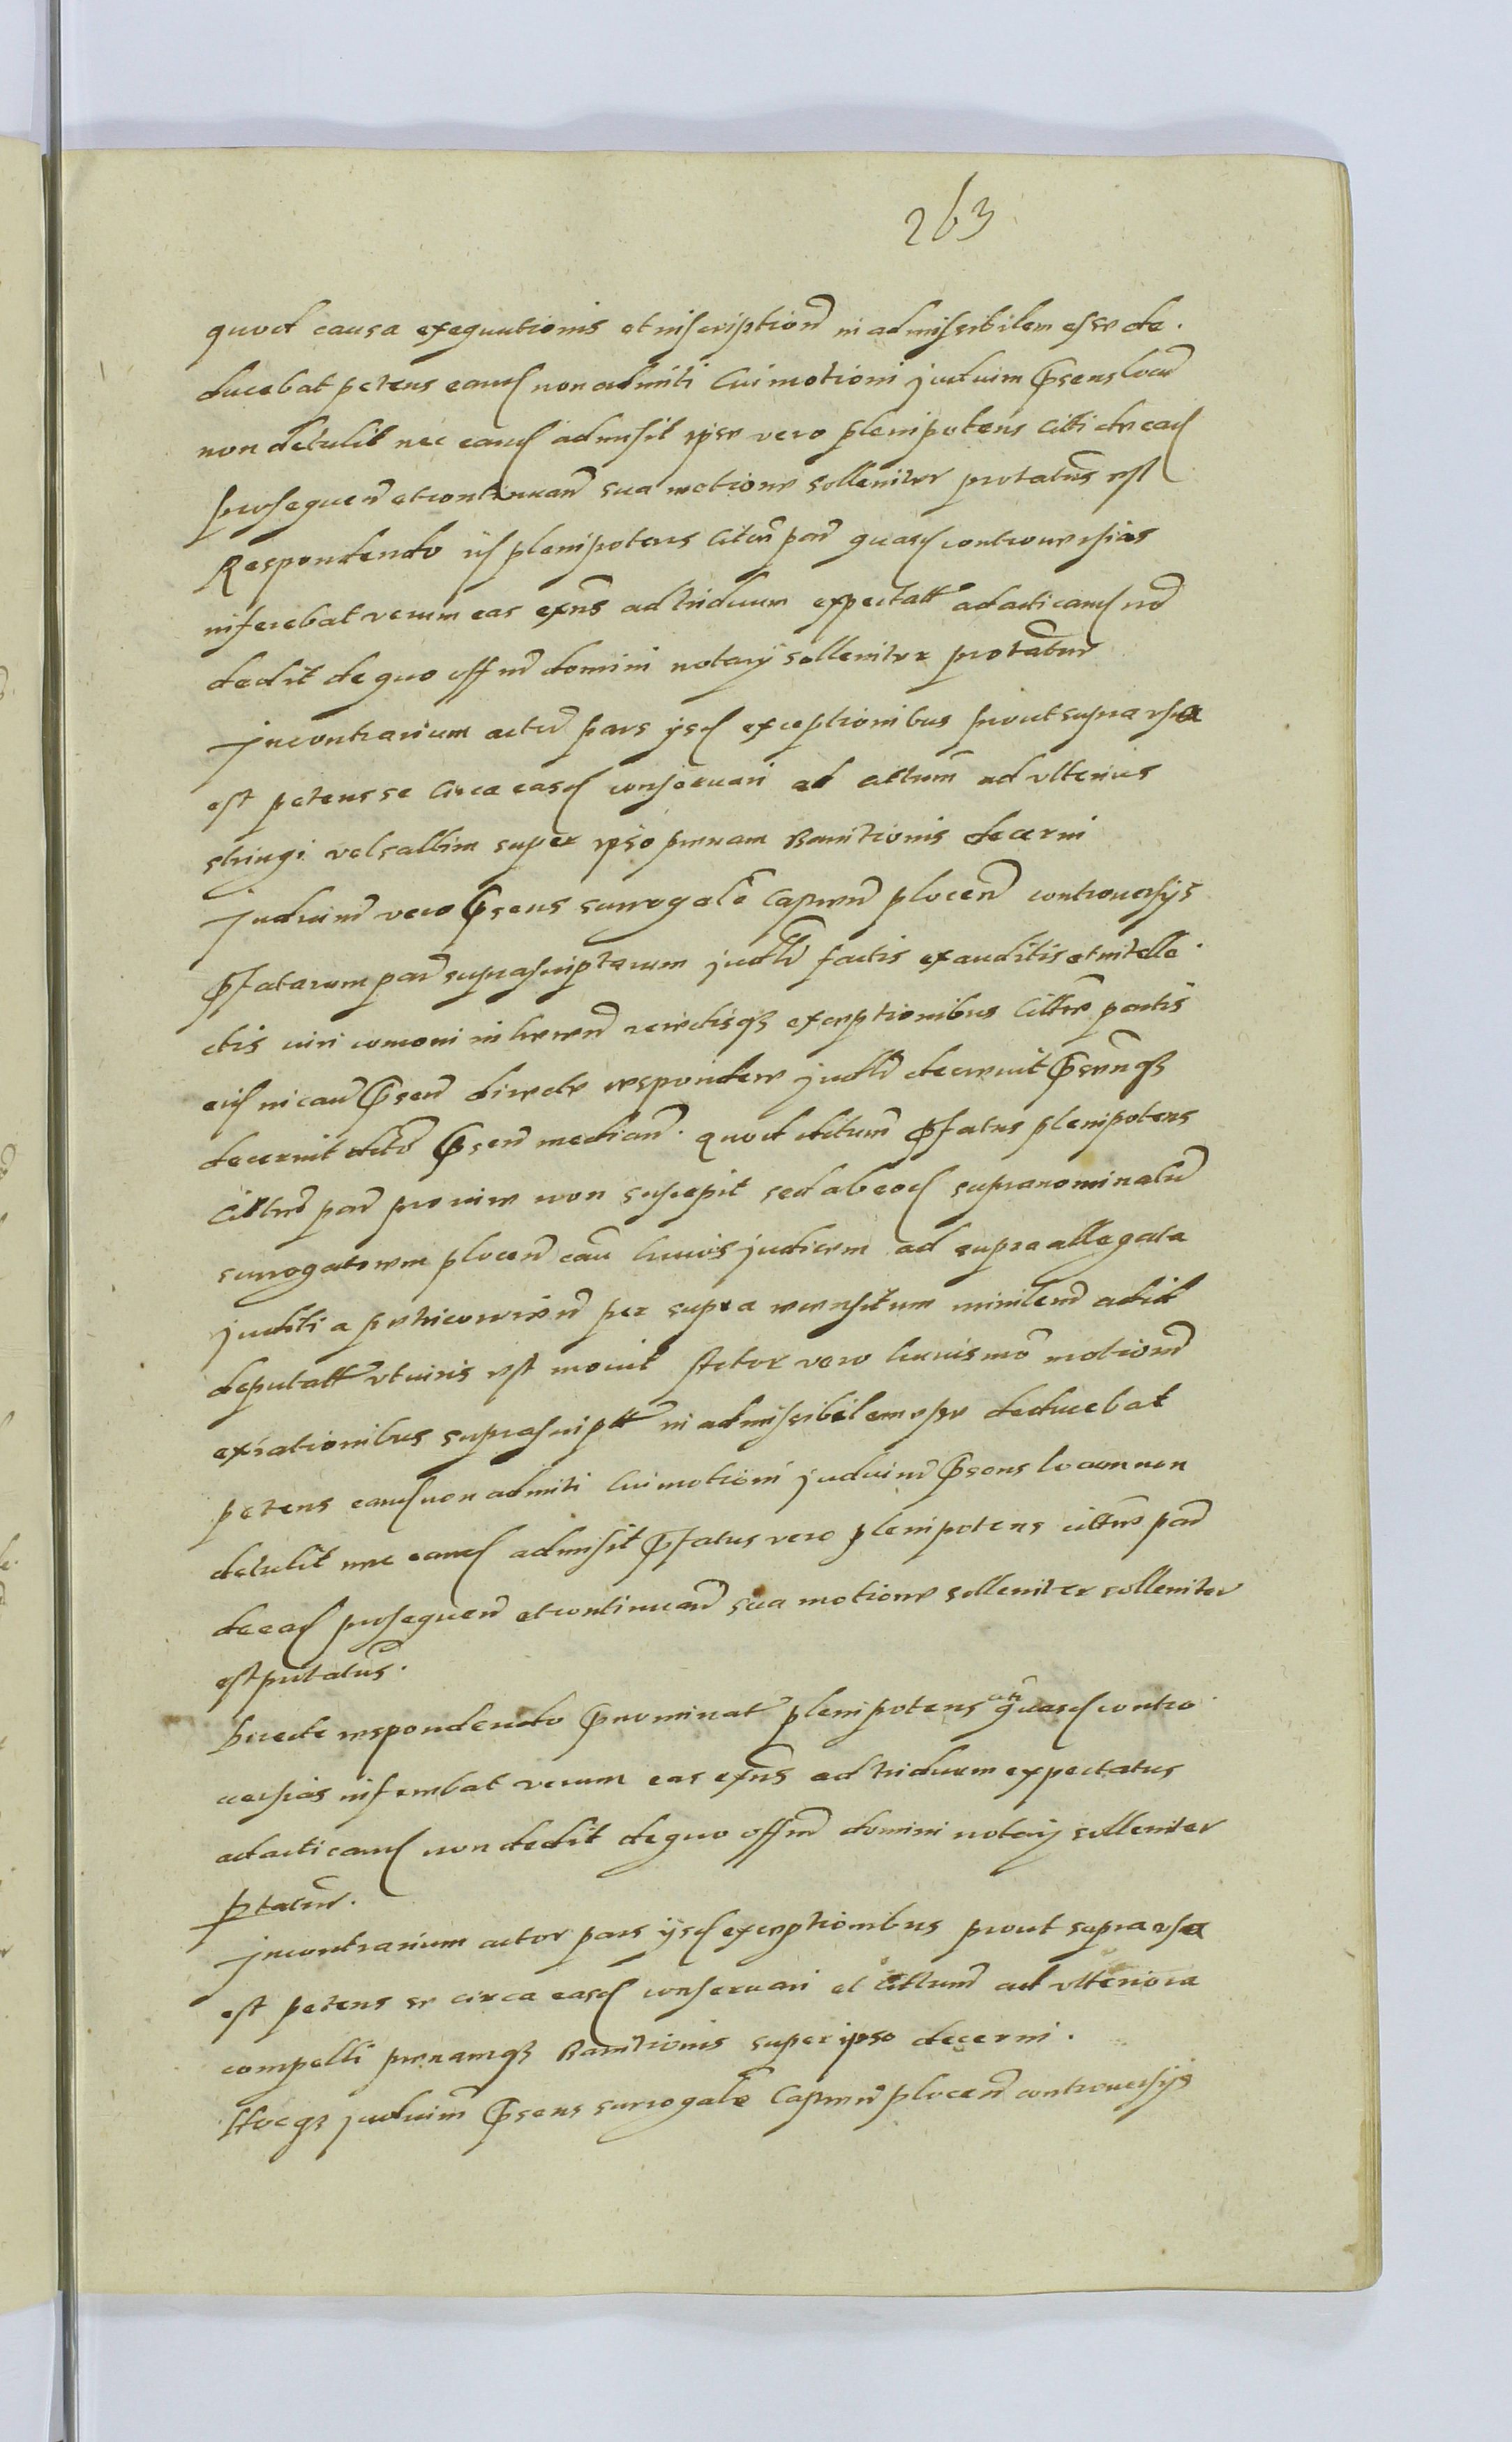 263
quod causa exequutionis et inscription in admissibilem esse de.
ducebat petens eand non admiti Cui motioni judicium Psens locu
non detulit nec eand admisit ipse vero plenipotens Citti de ead
prosequen et continuan sua motione solleniter protatus est
Respondendo iis plenipotens Citan par quasd controuersias
inferebat verum eas exns ad triduum expectatt ad acticand no
dedit de quo offm domini notarij solleniter protatur
Jn contrarium actor pars ijsd exceptionibus prout supra vsa
est petens se Circa easd conseruari ad cittum ad vlterius
stringi vel saltim super ipso penam Banitionis decerni
Judicium vero Psens surrogale Capnen plocen controuersijs
Pfatarum par suprascriptarum judlr factis exauditis et intelle.
ctis viri comoni in heren reiectisqz exceptionibus Cittre partis
eid in cau Psen directe respondere judlr decreuit Psensqz
decernit dcto Psen median. quod dctum Pfatus plenipotens
Cittre par pro iure non suscepit sed ab eod supranominatu
surrogatorem plocen cau huius judicem ad supra allegata
juditi a petricouien per supra recensitum minilem adid
deputatt vt iuris est mouit Actor vero huiusmo motionem
ex rationibus suprascriptt in admissibilem esse deducebat
petens eand non admiti Cui motioni judicium Psens locum non
detulit nec eand admisit Pfatus vero plenipotens cittre par
de ead prosequen et continuan sua motione solleniter solleniter
est protatus.
Directe respondendo Pnominat plenipotens quasd contro
uersias inferebat verum eas exns ad triduum expectatus
ad acticand non dedit de quo offm domini notarij solleniter
ptatur.
Jn contrarium actor pars ijsd exceptionibus prout supra vsa
est petens se circa easd conseruari et cittum ad vlteriora
compelli penamqz Banitionis super ipso decerni.
Hocqz judicium Psens surrogale Capnen plocen controuersijs